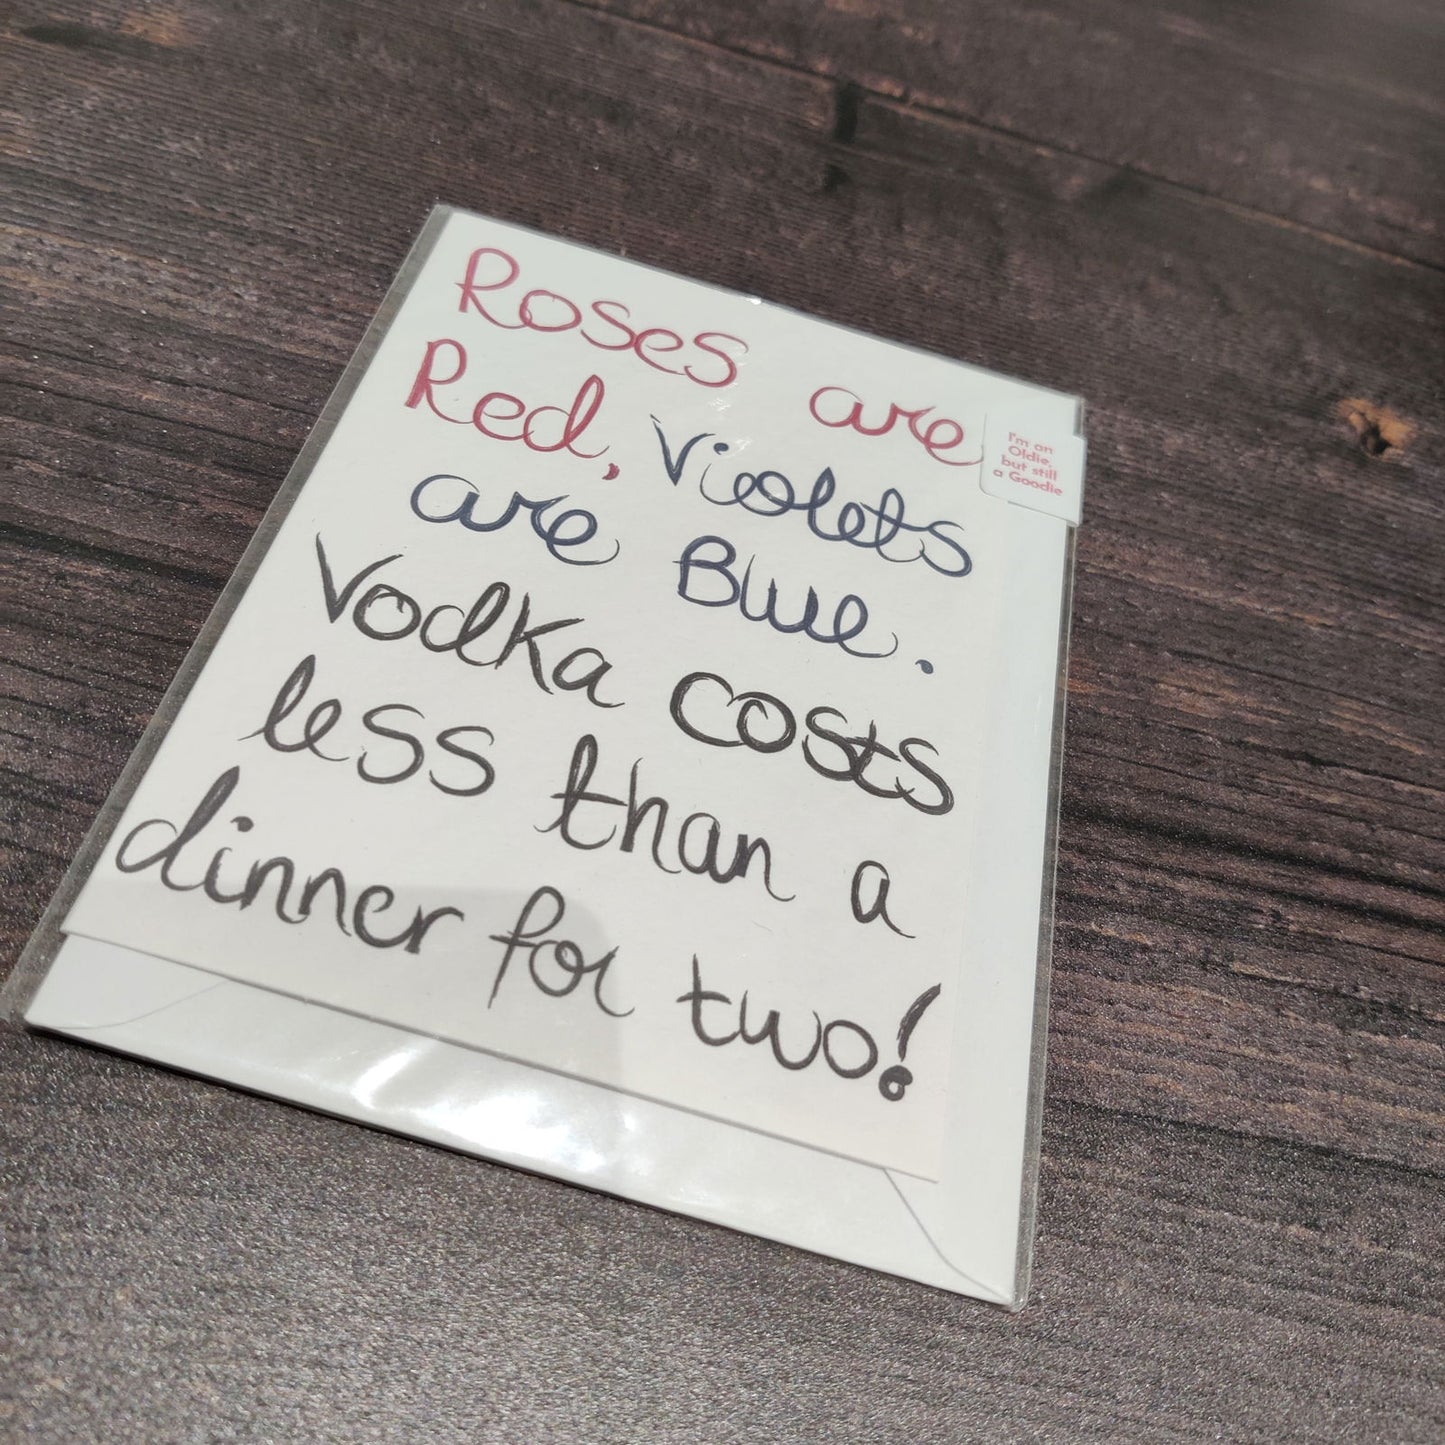 Roses are
Red, Violets
are Blue.
Vodka costs
less than a
dinner for two!
I'm an
Oldie,
but still
a Goodie